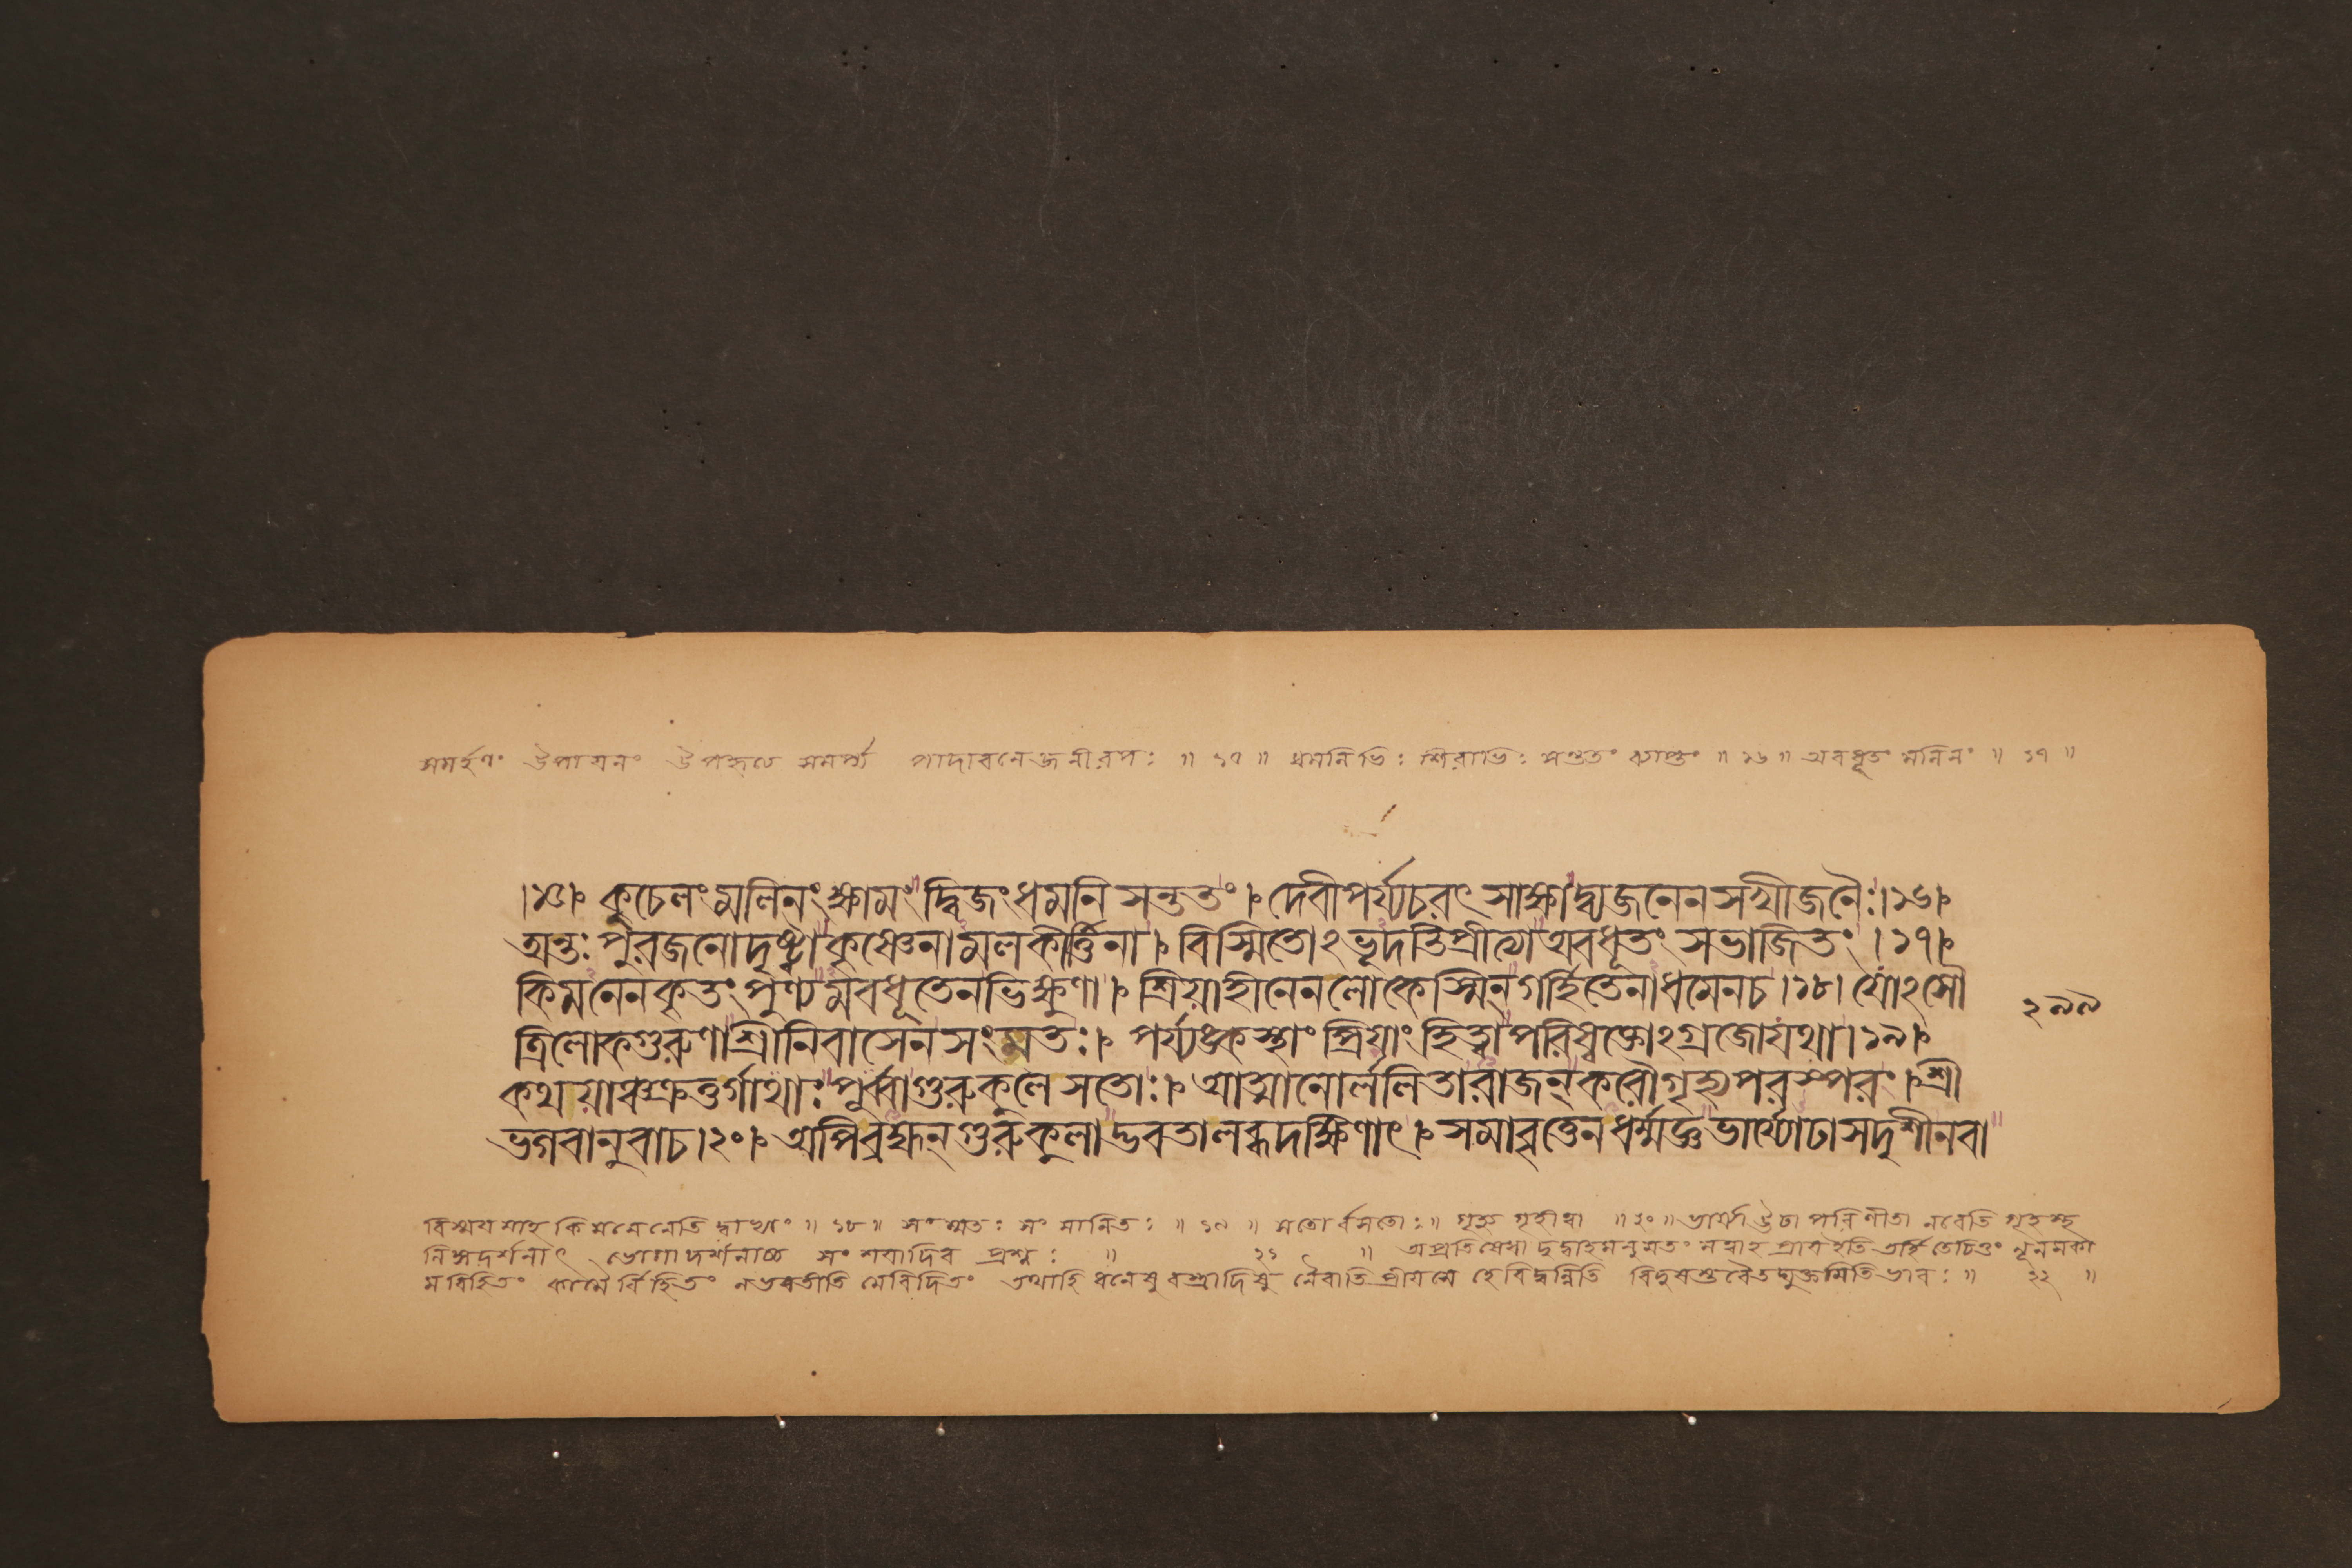 সমর্হণং উপায়নং উপহৃত্য সমর্প্য পাদাবনেজনীরপঃ ॥ ১৭ ॥ ধমনিভিঃ শিরাভিঃ সন্ততং ব্যাপ্তং ॥ ১৬ ॥ অবধূতং মলিনং ॥ ১৭ ॥
।১৫।৮ কুচেলং মলিনং ক্ষামং দ্বিজং ধমনি সন্ততং ।৮ দেবীপর্য্যচরৎ সাক্ষাদ্ব্যজনেন সখীজনৈঃ।১৬।৮
অন্তঃ পুরজনোদৃষ্ট্বা কৃষ্ণেনামলকীর্ত্তিনা ।৮ বিস্মিতোঽভূদতিপ্রীত্যা অবধূতং সভাজিতং ।১৭।৮
কিমনেনকৃতং পুণ্যমবধূতেনভিক্ষুণা ।৮ শ্রিয়াহীনেনলোকেস্মিন্ গর্হিতেনাধমেনচ।১৮। যোঽসৌ
২৯৯
ত্রিলোকগুরুণাশ্রীনিবাসেন সংমতঃ ।৮ পর্য্যঙ্কস্থাং শ্রিয়াং হিত্বাপরিষ্বক্তোঽগ্রজোযথা।১৯।৮
কথয়াঞ্চক্রতুর্গাথাঃ পূর্ব্বাগুরুকুলে সতোঃ ।৮ আত্মনোর্ললিতারাজন্ করৌগৃহ্যপরস্পরং ।৮শ্রী
ভগবানুবাচ।২০।৮ অপিব্রহ্মন্ গুরুকুলাদ্ভবতালব্ধদক্ষিণাৎ ।৮ সমাবৃত্তেনধর্ম্মজ্ঞভার্য্যোঢাসদৃশীনবা
বিস্ময়মাহ কিমনেনেতি দ্বাভ্যাং ॥ ১৮ ॥ সংমতঃ সংমানিতঃ ॥ ১৯ ॥ সতোর্বসতোঃ ॥ গৃহ্য গৃহীত্বা ॥ ২০ ॥ ভার্য্যাঊঢা পরিণীতা নবেতি গৃহস্থ
লিঙ্গদর্শনাৎ ভোগাদর্শনাচ্চ সংশয়াদিব প্রশ্নঃ ॥ ২১ ॥ অপ্রতিষেধাদুদ্বাহমনুমতং মত্বাহ প্রায়ইতি তর্হি তেচিত্তং নূনমকা
মবিহিতং কামৈর্বিহিতং নভবতীতি মেবিদিতং তথাহি ধনেষু বস্ত্রাদিষু নৈবাতিপ্রীয়সে হেবিদ্বন্নিতি বিদুষস্তবৈতদ্যুক্তমিতিভাবঃ ॥ ২২ ॥